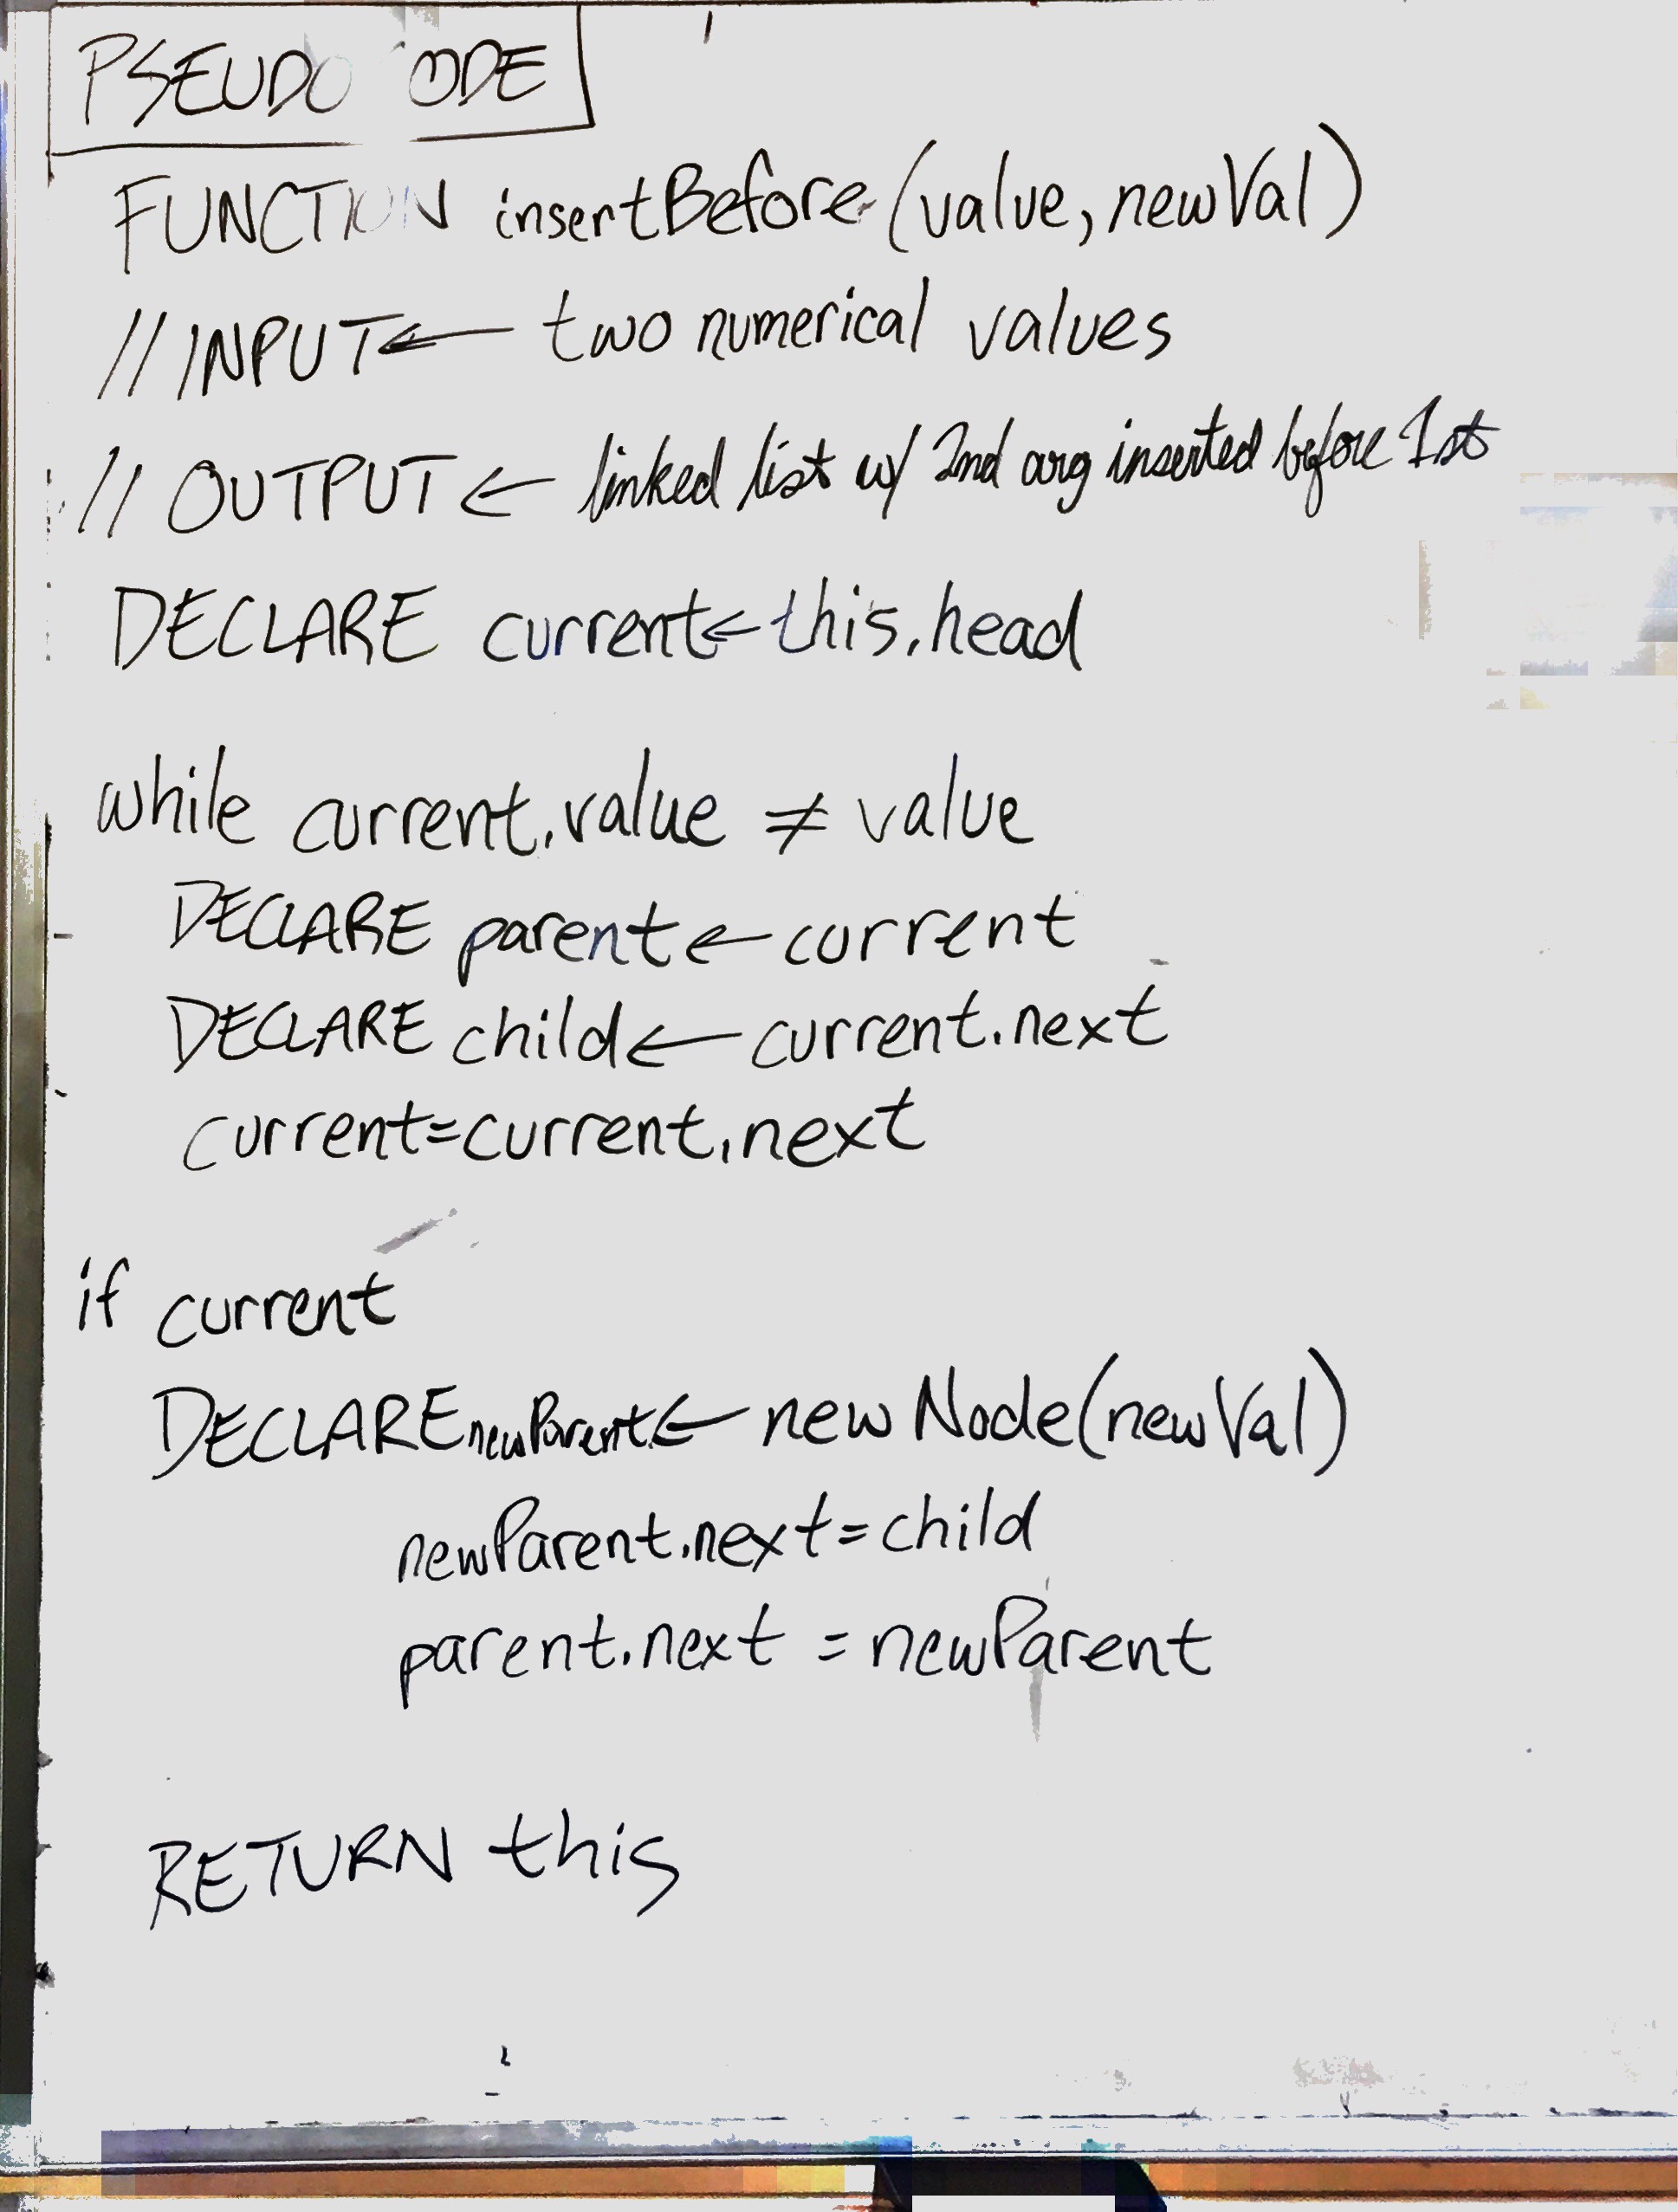 PSEUDO ODE
FUNCTION insertBefore (value, newVal)
// INPUT ← two numerical values
// OUTPUT ← linked list w/ 2nd arg inserted before 1st
DECLARE current ← this.head
while current.value ≠ value
DECLARE parent ← current
DECLARE child ← current.next
current = current.next
if current
DECLARE newParent ← new Node(newVal)
newParent.next = child
parent.next = newParent
RETURN this